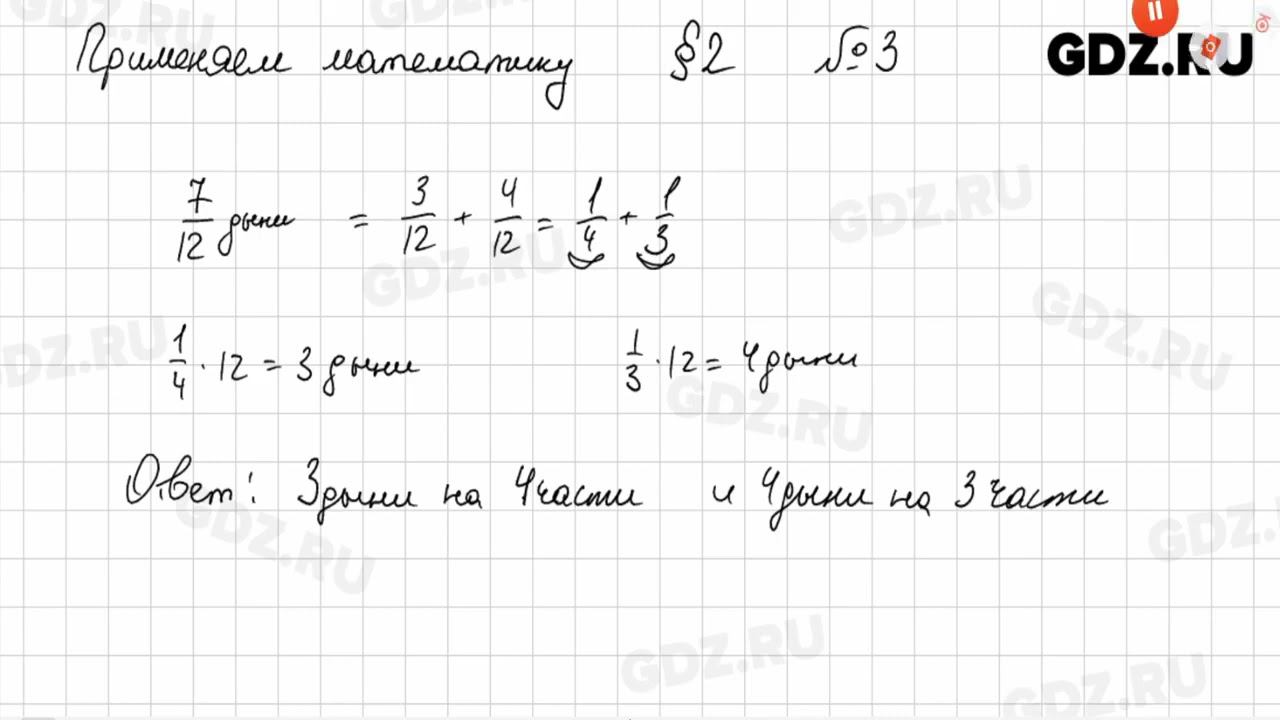 Применяем математику §2 №3 GDZ.RU
7/12 дыни = 3/12 + 4/12 = 1/4 + 1/3
1/4 · 12 = 3 дыни 1/3 · 12 = 4 дыни
Ответ: 3 дыни на 4 части и 4 дыни на 3 части